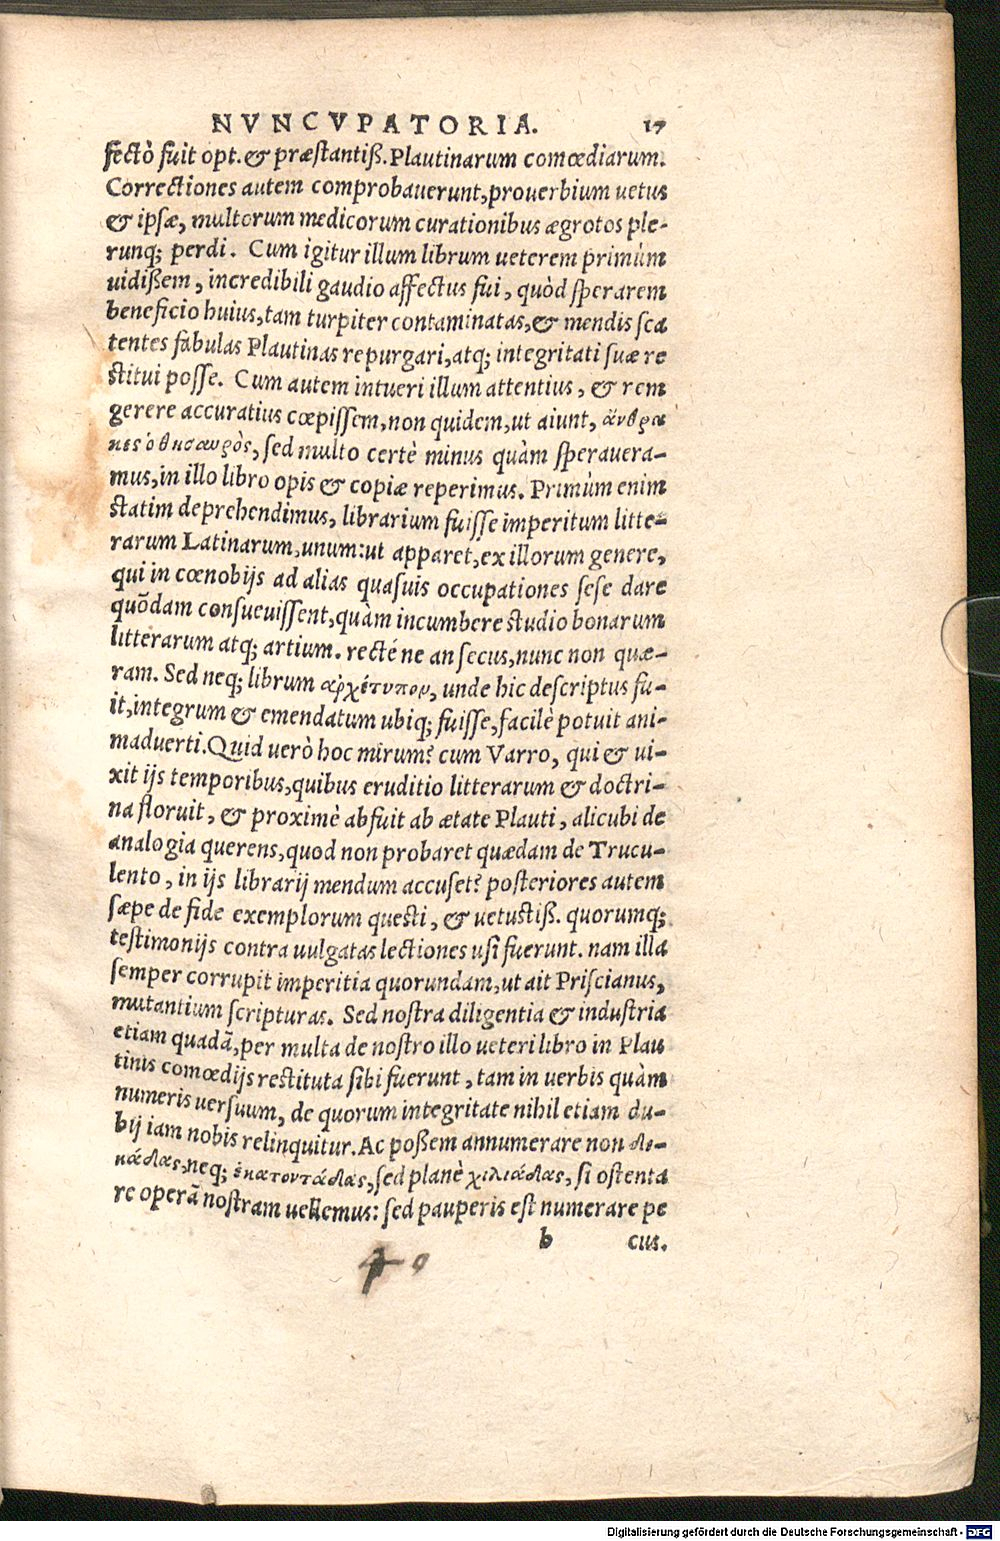 NVNCVPATORIA. 17
fectò fuit opt. & præstantiß. Plautinarum comœdiarum.
Correctiones autem comprobauerunt, prouerbium uetus
& ipsæ, multorum medicorum curationibus ægrotos ple-
runq; perdi. Cum igitur illum librum ueterem primùm
uidißem, incredibili gaudio affectus fui, quòd sperarem
beneficio huius, tam turpiter contaminatas, & mendis sca
tentes fabulas Plautinas repurgari, atq; integritati suæ re
stitui posse. Cum autem intueri illum attentius, & rem
gerere accuratius cœpissem, non quidem, ut aiunt, ἄνθρα
κες ὁ θησαυρὸς, sed multo certè minus quàm sperauera-
mus, in illo libro opis & copiæ reperimus. Primùm enim
statim deprehendimus, librarium fuisse imperitum litte-
rarum Latinarum, unum: ut apparet, ex illorum genere,
qui in cœnobijs ad alias quasuis occupationes sese dare
quõdam consueuissent, quàm incumbere studio bonarum
litterarum atq; artium. recté ne an secus, nunc non quæ-
ram. Sed neq; librum ἀρχέτυπον, unde hic descriptus fu-
it, integrum & emendatum ubiq; fuisse, facilè potuit ani-
maduerti. Quid uerò hoc mirum? cum Varro, qui & ui-
xit ijs temporibus, quibus eruditio litterarum & doctri-
na floruit, & proximè abfuit ab ætate Plauti, alicubi de
analogia querens, quod non probaret quædam de Trucu-
lento, in ijs librarij mendum accuset? posteriores autem
sæpe de fide exemplorum questi, & uetustiß. quorumq;
testimonijs contra uulgatas lectiones usi fuerunt. nam illa
semper corrupit imperitia quorundam, ut ait Priscianus,
mutantium scripturas. Sed nostra diligentia & industria
etiam quadã, per multa de nostro illo ueteri libro in Plau
tinis comœdijs restituta sibi fuerunt, tam in uerbis quàm
numeris uersuum, de quorum integritate nihil etiam du-
bij iam nobis relinquitur. Ac poßem annumerare non δε-
κάδας, neq; ἑκατοντάδας, sed planè χιλιάδας, si ostenta
re operã nostram uellemus: sed pauperis est numerare pe
b cus.